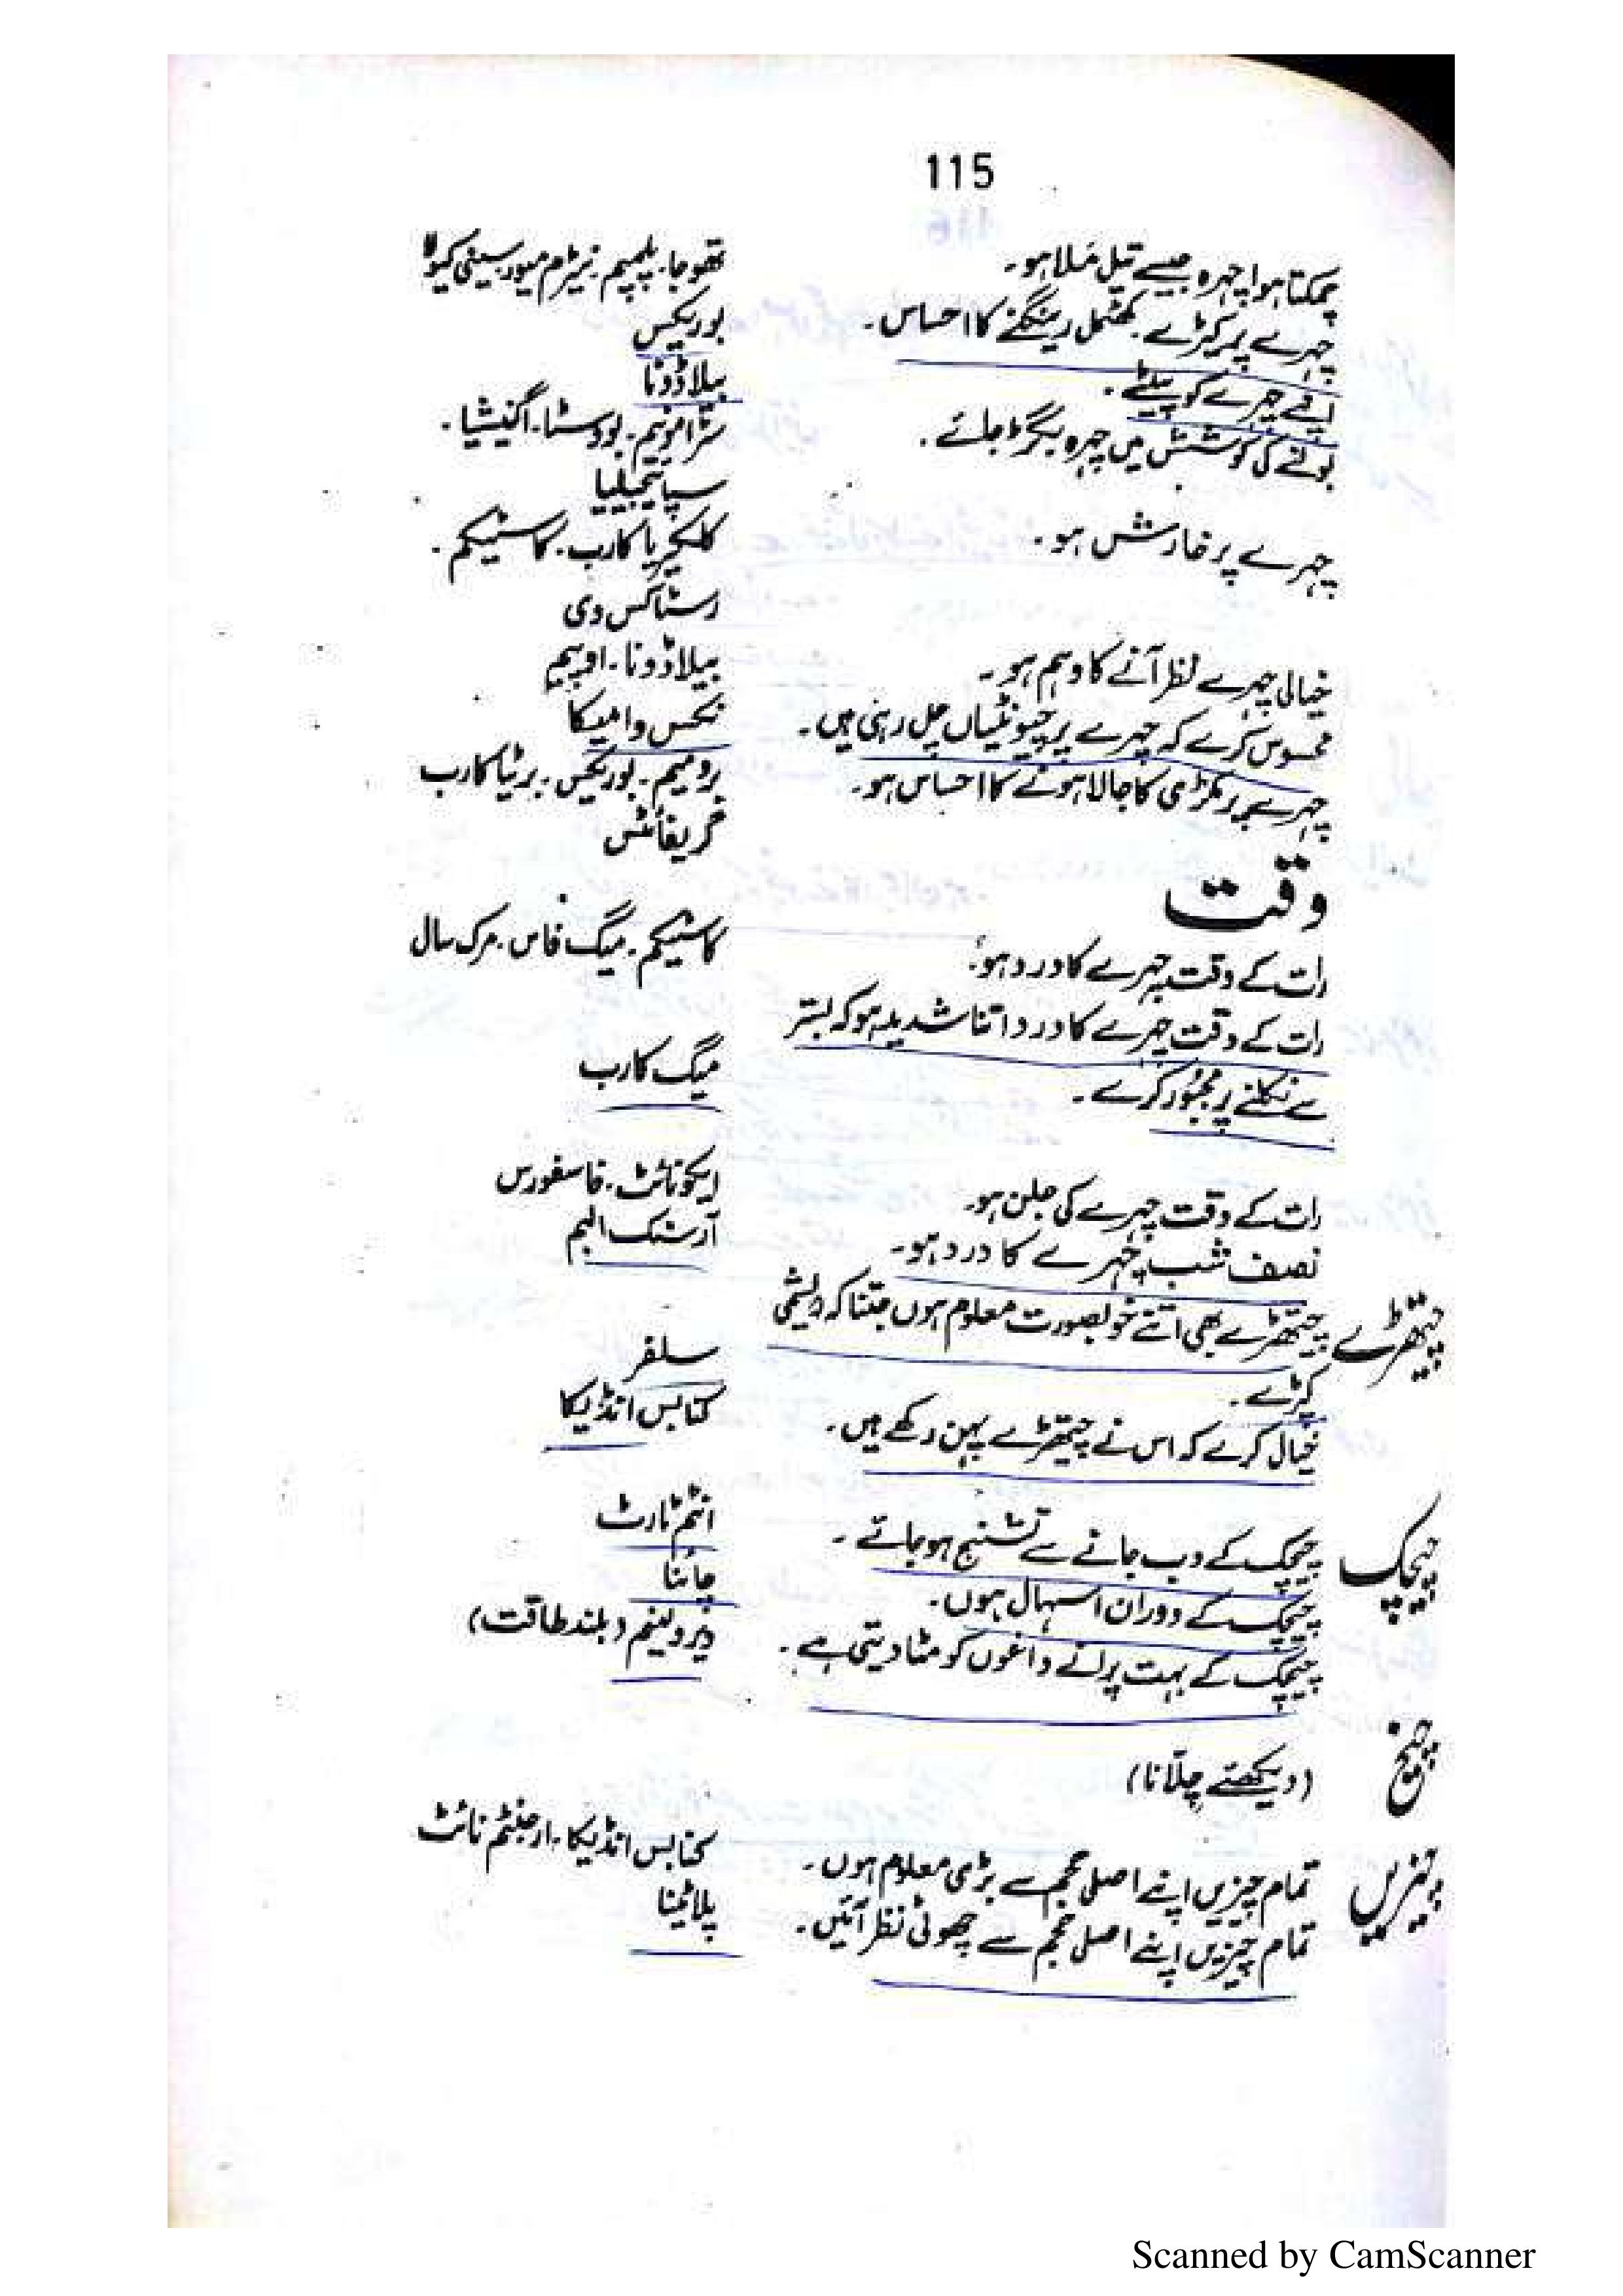 115
چمکتا ہوا چہرہ جیسے تیل مَلا ہو۔ تھوجا۔ پلمبم۔ نیٹرم میور۔ سینی کیولا
چہرے پر کیڑے۔ کھٹمل رینگنے کا احساس۔ بوریکس
اپنے چہرے کو پیٹے۔ بیلاڈونا
بولنے کی کوشش میں چہرہ بگڑ جائے۔ سٹرامونیم۔ بووسٹا۔ اگنیشیا۔
سپائیجیلیا
چہرے پر خارش ہو۔ کلکیریا کارب۔ کاسٹیکم۔
رسٹاکس وی
خیالی چہرے نظر آنے کا وہم ہو۔ بیلاڈونا۔ اوپیم
محسوس کرے کہ چہرے پر چیونٹیاں چل رہی ہیں۔ نکس وامیکا
چہرے پر مکڑی کا جالا ہونے کا احساس ہو۔ برومیم۔ بوریکس۔ برٹیا کارب
گریفائٹس
وقت
رات کے وقت چہرے کا درد ہو۔ کاسٹیکم۔ میگ فاس۔ مرک سال
رات کے وقت چہرے کا درد اتنا شدید ہو کہ بستر
سے نکلنے پر مجبور کرے۔ میگ کارب
رات کے وقت چہرے کی جلن ہو۔ ایکونائٹ۔ فاسفورس
نصف شب چہرے کا درد ہو۔ آرسنک البم
چیتھڑے چیتھڑے بھی اتنے خوبصورت معلوم ہوں جتنا کہ ریشمی
کپڑے۔ سلفر
خیال کرے کہ اس نے چیتھڑے پہن رکھے ہیں۔ کنابس انڈیکا
چیچک چیچک کے دب جانے سے تشنج ہو جائے۔ انٹم ٹارٹ
چیچک کے دوران اسہال ہوں۔ چائنا
چیچک کے بہت پرانے داغوں کو مٹا دیتی ہے۔ ویرولینم (بلند طاقت)
چیخ (دیکھئے چلّانا)
چیزیں تمام چیزیں اپنے اصلی حجم سے بڑی معلوم ہوں۔ کنابس انڈیکا۔ ارجنٹم نائٹ
تمام چیزیں اپنے اصلی حجم سے چھوٹی نظر آئیں۔ پلاٹینا
Scanned by CamScanner